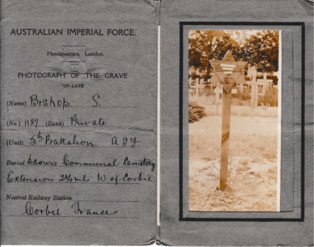 AUSTRALIAN IMPERIAL FORCE.
Headquarters, London.
PHOTOGRAPH OF THE GRAVE
OF LATE
(Name) Bishop S.
(No.) 1187 (Rank) Private
(Unit) 5th Battalion A.I.F.
Burial Adours Communal Cemetery
Extension 2¾ mls W of Corbie
Nearest Railway Station
Corbie France